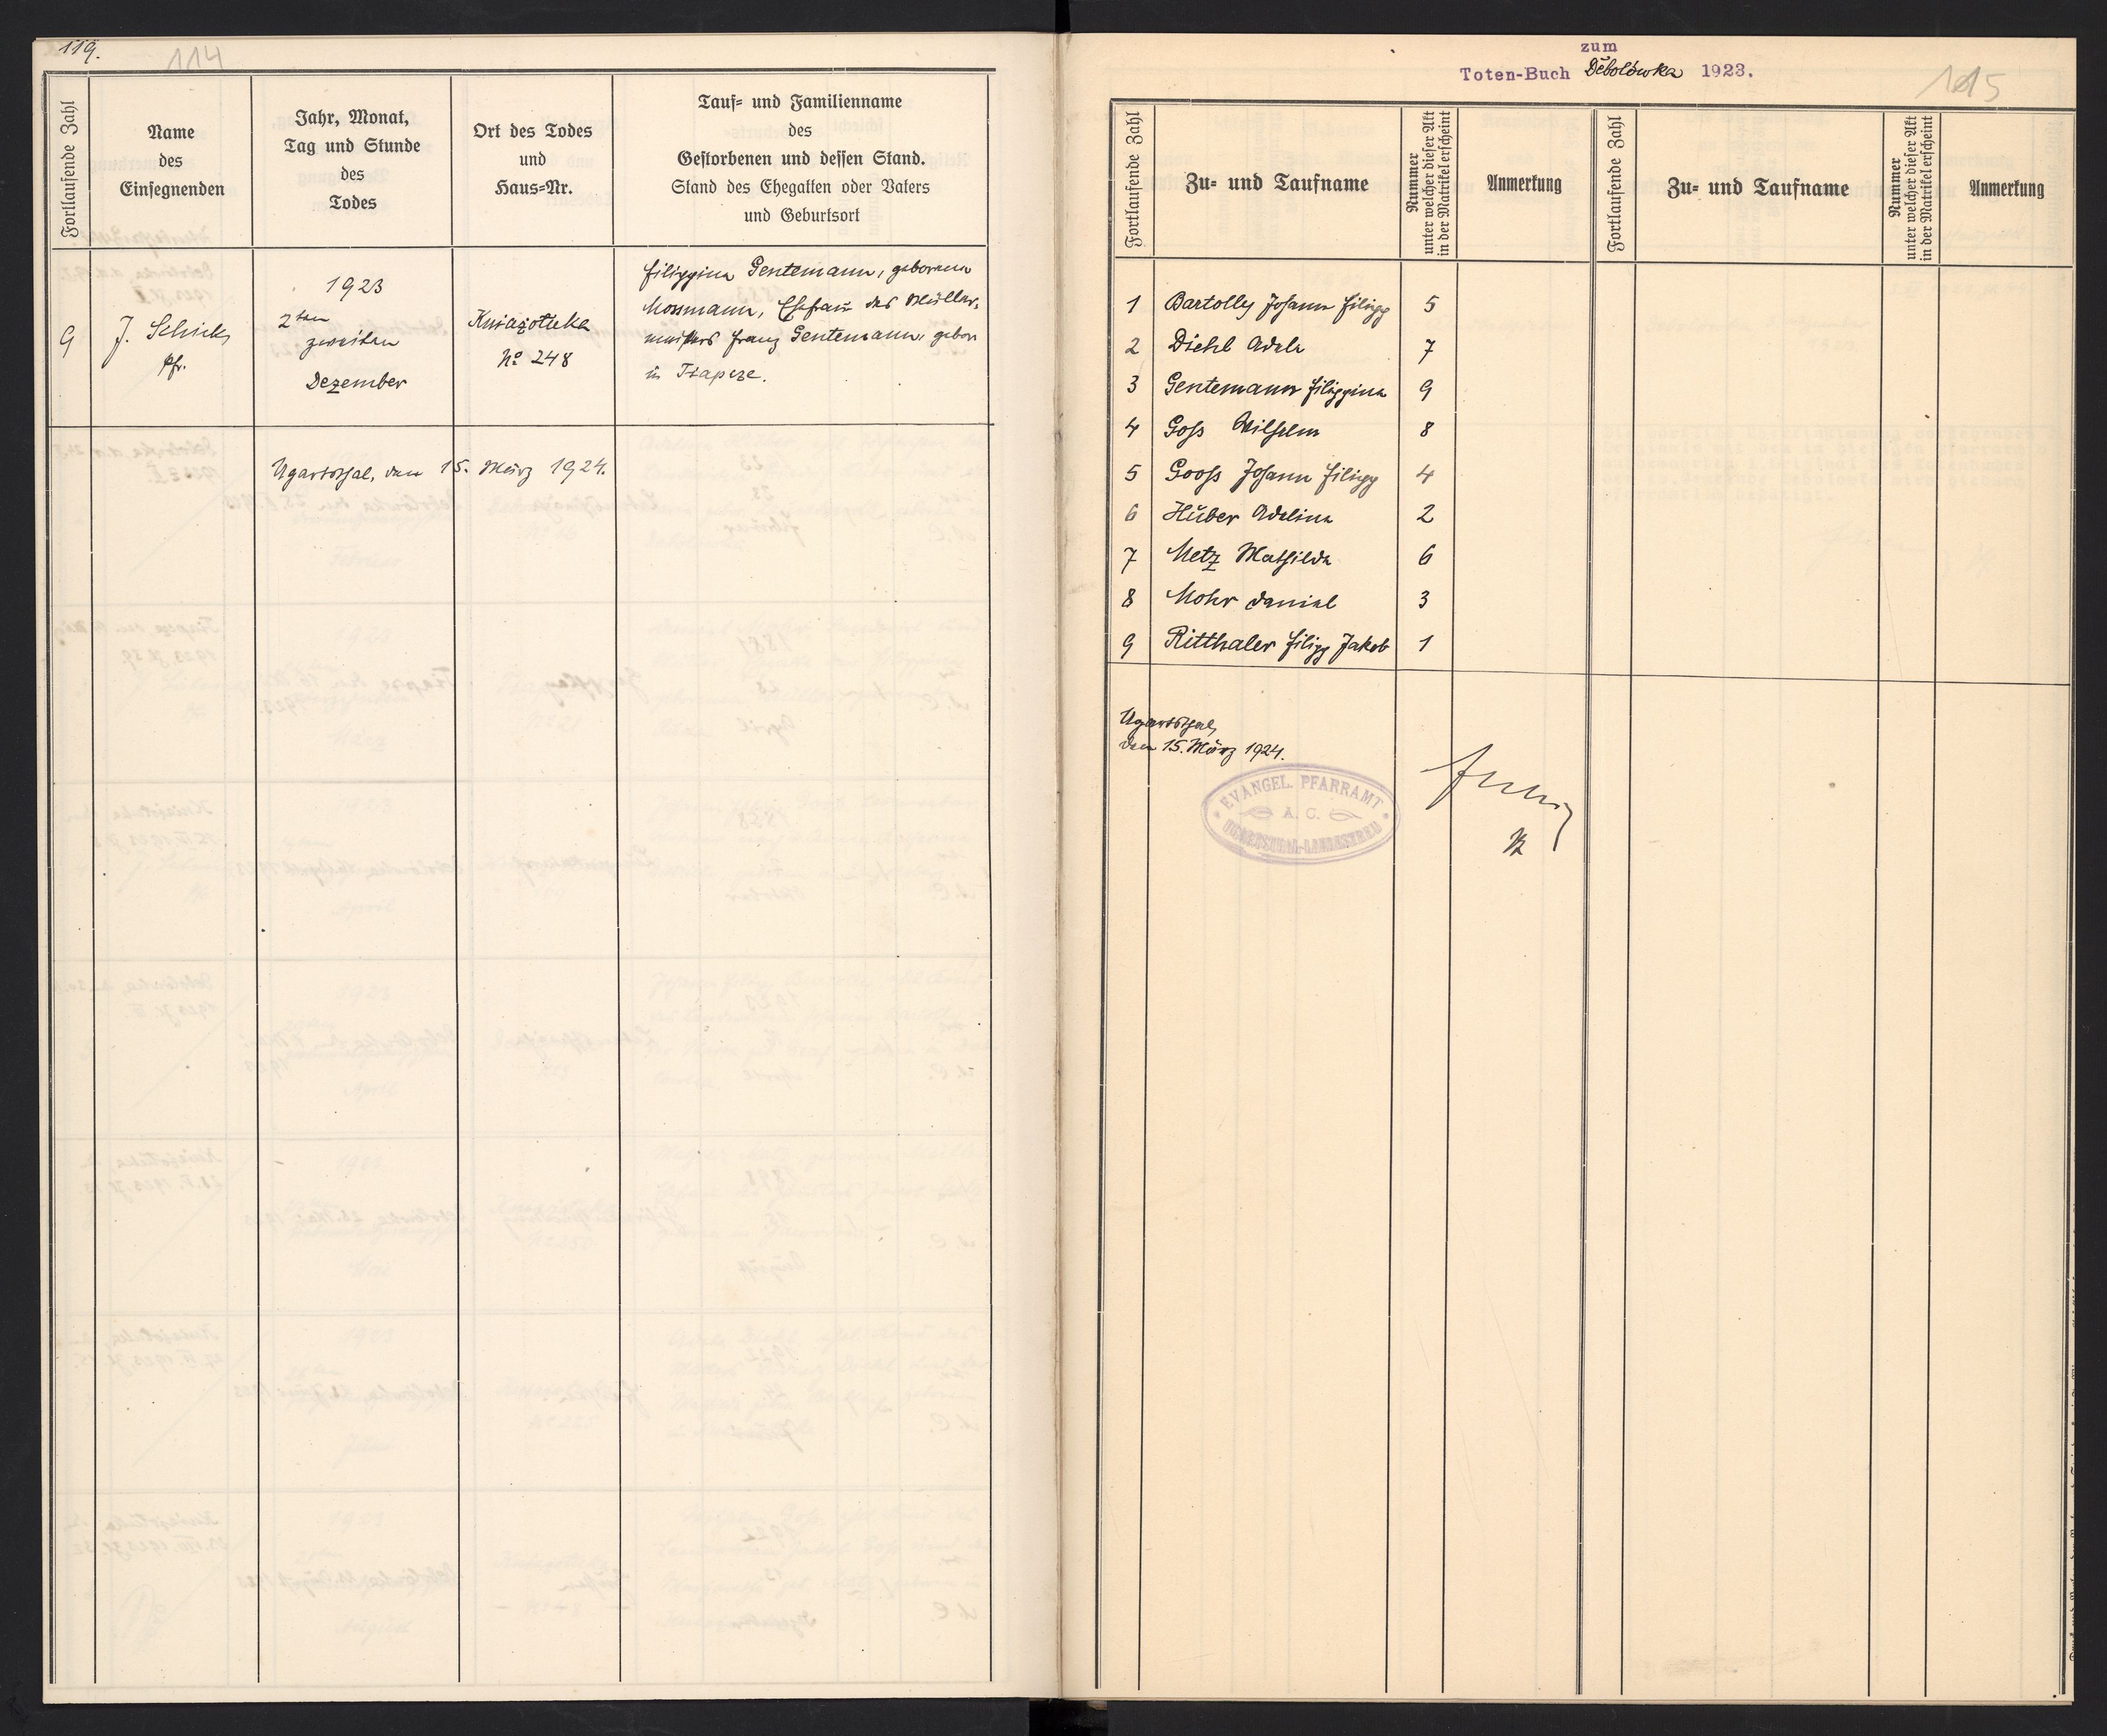 119.
114
Fortlaufende Zahl
Name
des
Einsegnenden
Jahr, Monat,
Tag und Stunde
des
Todes
Ort des Todes
und
Haus-Nr.
Tauf- und Familienname
des
Gestorbenen und dessen Stand.
Stand des Ehegatten oder Vaters
und Geburtsort
9
J. Schick
Pfr.
1923
2ten
zweiten
Dezember
Kniazoluka
No 248
Filippina Gentemann, geborene
Mossmann, Ehefrau des Müller-
meisters Franz Gentemann, geboren
in Trapeze.
Ugartsthal, den 15. März 1924.
zum
Toten-Buch Debolówka 1923.
115
Fortlaufende Zahl
Zu- und Taufname
Nummer
unter welcher dieser Akt
in der Matrikel erscheint
Anmerkung
Fortlaufende Zahl
Zu- und Taufname
Nummer
unter welcher dieser Akt
in der Matrikel erscheint
Anmerkung
1 Bartolly Johann Filipp 5
2 Diehl Adele 7
3 Gentemann Filippina 9
4 Goss Wilhelm 8
5 Gooss Johann Filipp 4
6 Huber Adelina 2
7 Metz Mathilda 6
8 Mohr Daniel 3
9 Ritthaler Filipp Jakob 1
Ugartsthal,
den 15. März 1924.
EVANGEL. PFARRAMT
A. C.
UGARTSTHAL-LANDESTREU